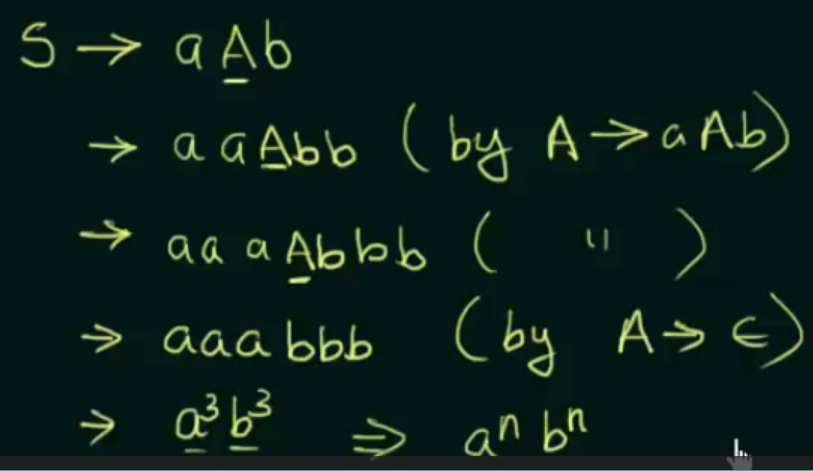 S → aAb
→ aaAbb (by A → aAb)
→ aaaAbbb ( " )
→ aaabbb (by A → ϵ)
→ a³b³ ⇒ aⁿbⁿ